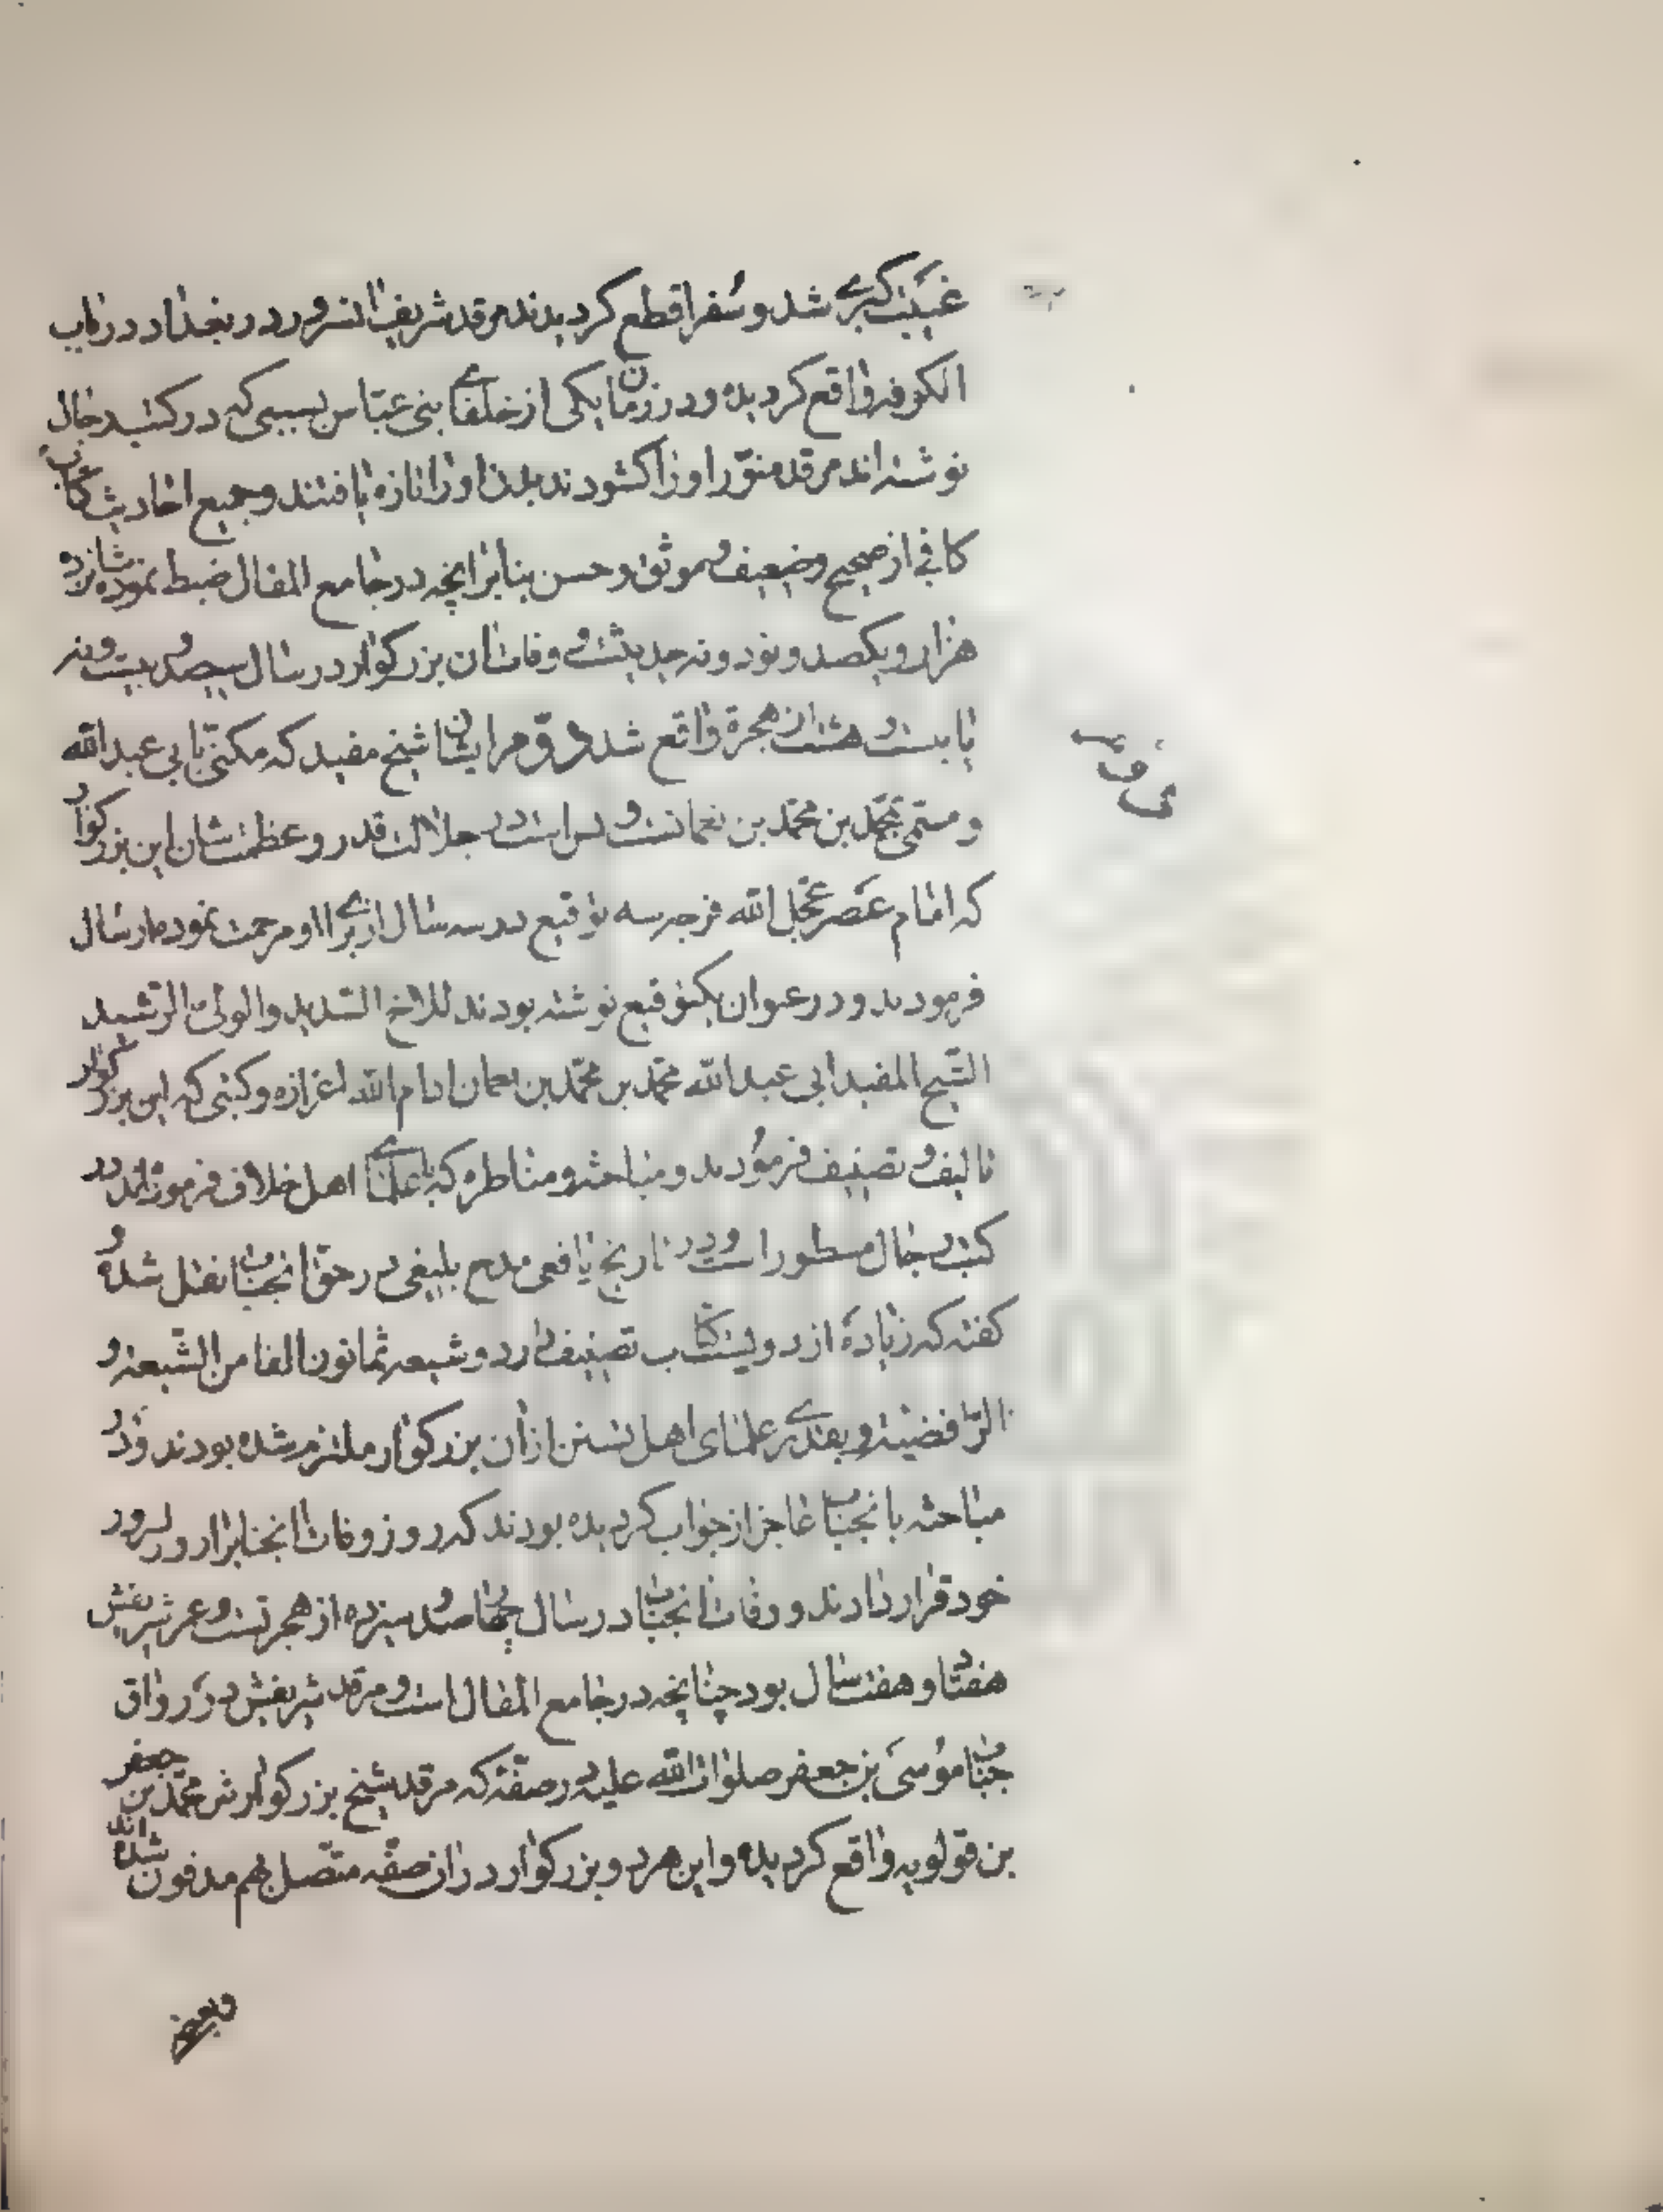 غیبت کبری شد و سفرا قطع کردیدند مرقد شریف آنسرور در بغداد در باب
الکوفه واقع کردیده و در زمان یکی از خلفای بنی عباس بسببی که در کتب رجال
نوشته‌اند مرقد منور او را کشودند بدن او را تازه یافتند و جمیع احادیث کتاب
کافی از صحیح و ضعیف و موثق و حسن بنابر آنچه در جامع المقال ضبط نموده شانزده
هزار و یکصد و نود و نه حدیثست و وفات آن بزرکوار در سال سیصد و بیست و نه
یا بیست و هشت از هجرة واقع شد دوّم از ایشان شیخ مفید که مکنّی بابی عبد الله
و مسمّی بمحمّد بن محمّد بن نعمانست و بس است در جلالت قدر و عظمت شان این بزرکوار
که امام عصر عجّل الله فرجه سه توقیع در سه سال از برای او مرحمت نموده ارسال
فرمودند و در عنوان یکتوقیع نوشته بودند للاخ السّدید والولیّ الرّشید
الشّیخ المفید ابی عبد الله محمّد بن محمّد بن نعمان ادام الله اعزازه و کتبی که این بزرکوار
تالیف و تصنیف فرمودند و مباحثه و مناظره که با علمای اهل خلاف فرموده‌اند در
کتب رجال مسطور است و در تاریخ یافعی مدح بلیغی در حق آنجناب نقل شده و
کفته که زیاده از دویست کتاب تصنیف دارد و شیعه ثمانون الفا من الشّیعة و
الرّافضیّة و بقدری علمای اهل تسنن از آن بزرکوار ملزم شده بودند و در
مباحثه با آنجناب عاجز از جواب کردیده بودند که روز وفات آنجناب را روز سرور
خود قرار دادند و وفات آنجناب در سال چهارصد و سیزده از هجرتست و عمر شریفش
هفتاد و هفت سال بود چنانچه در جامع المقال است و مرقد شریفش در رواق
جناب موسی بن جعفر صلوات الله علیه در صفّه که مرقد شیخ بزرکوارش محمّد بن جعفر
بن قولویه واقع کردیده و این هر دو بزرکوار در آن صفّه متّصل بهم مدفون شده‌اند